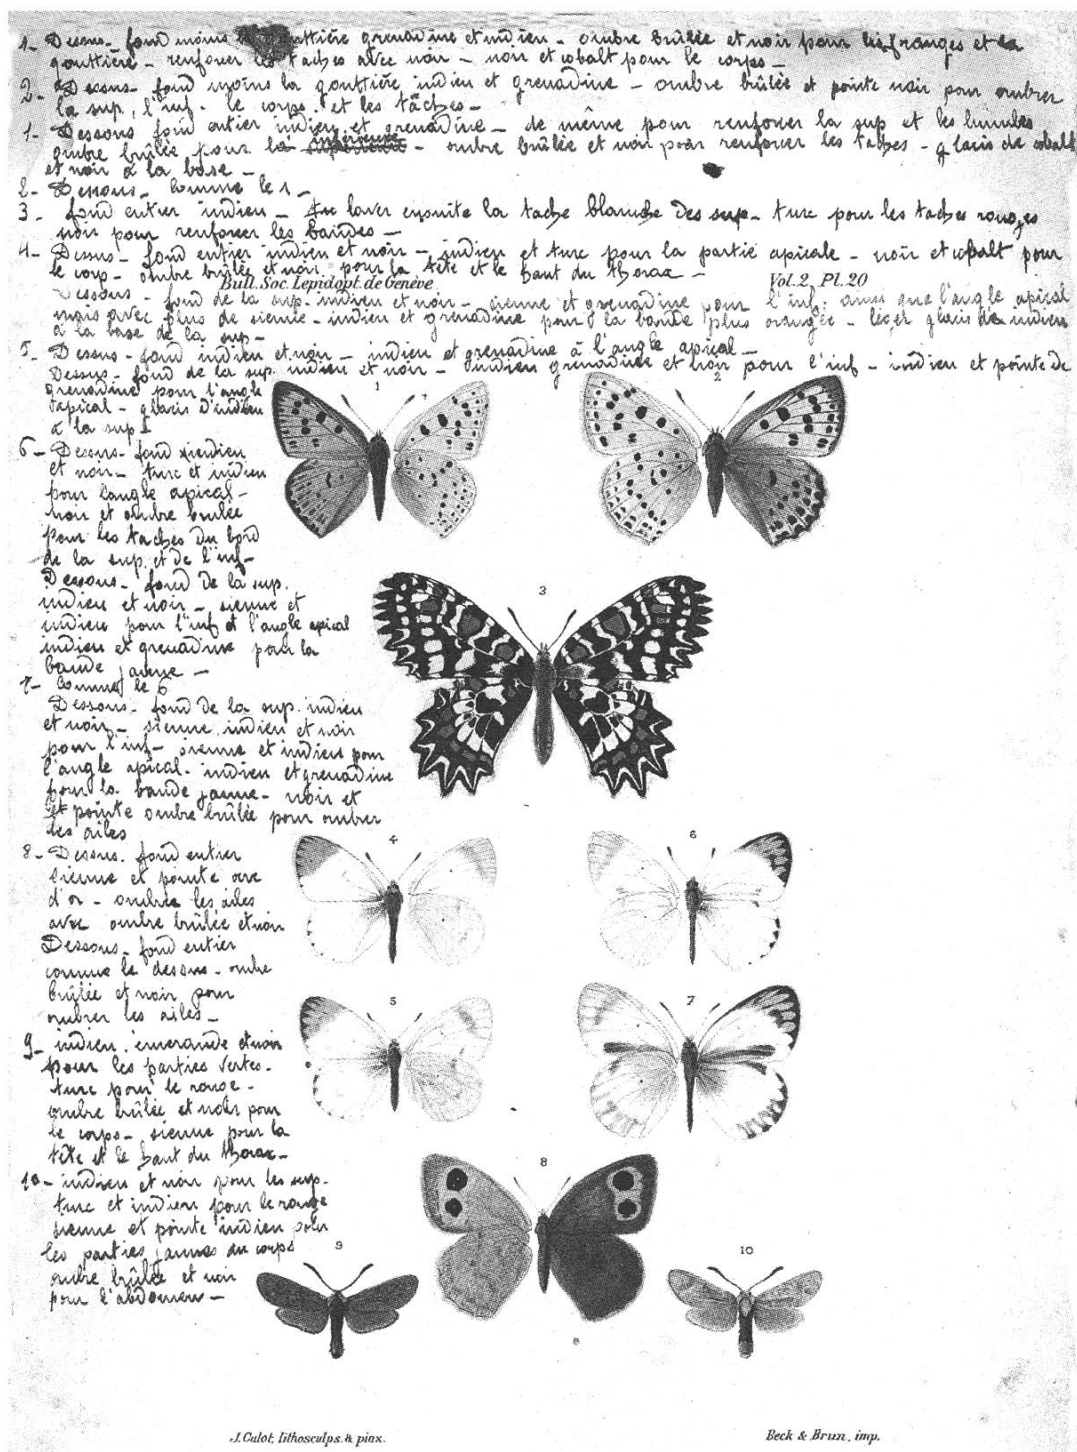 1- Dessus - fond moins la gouttière grenadine et indien - ombre brûlée et noir pour les franges et la
gouttière - renforcer les taches avec noir - noir et cobalt pour le corps -
2- Dessus - fond moins la gouttière indien et grenadine - ombre brûlée et pointe noir pour ombrer
la sup, l'inf. le corps et les tâches -
1- Dessous fond entier indien et grenadine - de même pour renforcer la sup et les lunules
ombre brûlée pour la inférieure - ombre brûlée et noir pour renforcer les taches - glacis de cobalt
et noir à la base -
2- Dessous - comme le 1 -
3- fond entier indien - laver ensuite la tache blanche des sup - turc pour les taches rouges
noir pour renforcer les bandes -
4- Dessus - fond entier indien et noir - indien et turc pour la partie apicale - noir et cobalt pour
le corp - ombre brûlée et noir pour la tête et le haut du thorax -
Bull. Soc. Lépidopt. de Genève. Vol. 2, Pl. 20
Dessous - fond de la sup. indien et noir - sienne et grenadine pour l'inf. ainsi que l'angle apical
mais avec plus de sienne - indien et grenadine pour la bande plus orangée - léger glacis de indien
à la base de la sup -
5- Dessus - fond indien et noir - indien et grenadine à l'angle apical -
Dessus - fond de la sup. indien et noir - indien grenadine et noir pour l'inf - indien et pointe de
grenadine pour l'angle
apical - glacis d'indien
à la sup
1
2
6- Dessus - fond indien
et noir - turc et indien
pour l'angle apical -
noir et ombre brûlée
pour les taches du bord
de la sup et de l'inf -
Dessous - fond de la sup.
indien et noir - sienne et
indien pour l'inf et l'angle apical
indien et grenadine pour la
bande jaune -
3
7- Comme le 6
Dessous - fond de la sup. indien
et noir - sienne, indien et noir
pour l'inf - sienne et indien pour
l'angle apical - indien et grenadine
pour la bande jaune - noir et
et pointe ombre brûlée pour ombrer
les ailes
4
6
8- Dessus - fond entier
sienne et pointe ocre
d'or - ombrée les ailes
avec ombre brûlée et noir
Dessous - fond entier
comme le dessus - ombre
brûlée et noir pour
ombrer les ailes -
5
7
9- indien, émeraude et noir
pour les parties vertes -
turc pour le rouge -
ombre brûlée et noir pour
le corps - sienne pour la
tête et le haut du thorax -
8
10- indien et noir pour les sup -
turc et indien pour le rouge
sienne et pointe indien pour
les parties jaunes du corps
ombre brûlée et noir
pour l'abdomen -
9
10
8
J. Culot, lithosculps. & pinx. Beck & Brun, imp.